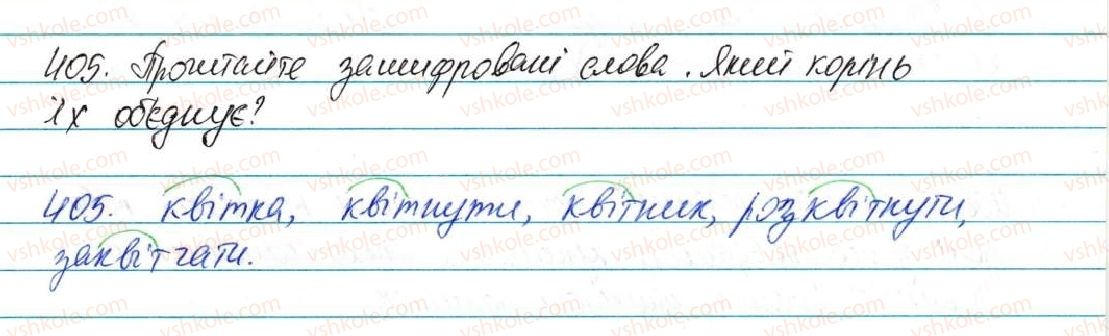 405. Прочитайте зашифровані слова. Який корінь
їх об'єднує?
405. квітка, квітнути, квітник, розквітнути,
заквітчати.